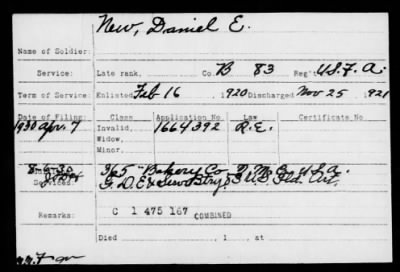 New, Daniel E.
Name of Soldier:
Service: Late rank, Co. B 83 Reg't U.S.F.A.
Term of Service: Enlisted Feb 16, 1920 Discharged Nov 25, 1921
Date of Filing: Class Application No. Law Certificate No.
1930 Apr. 7 Invalid, 1664392 R.E.
Widow,
Minor,
8-6-30 365 Bakery Co Q.M.C. U.S.A.
Services: Btry
Remarks: C 1 475 167 COMBINED
Died , 1 , at